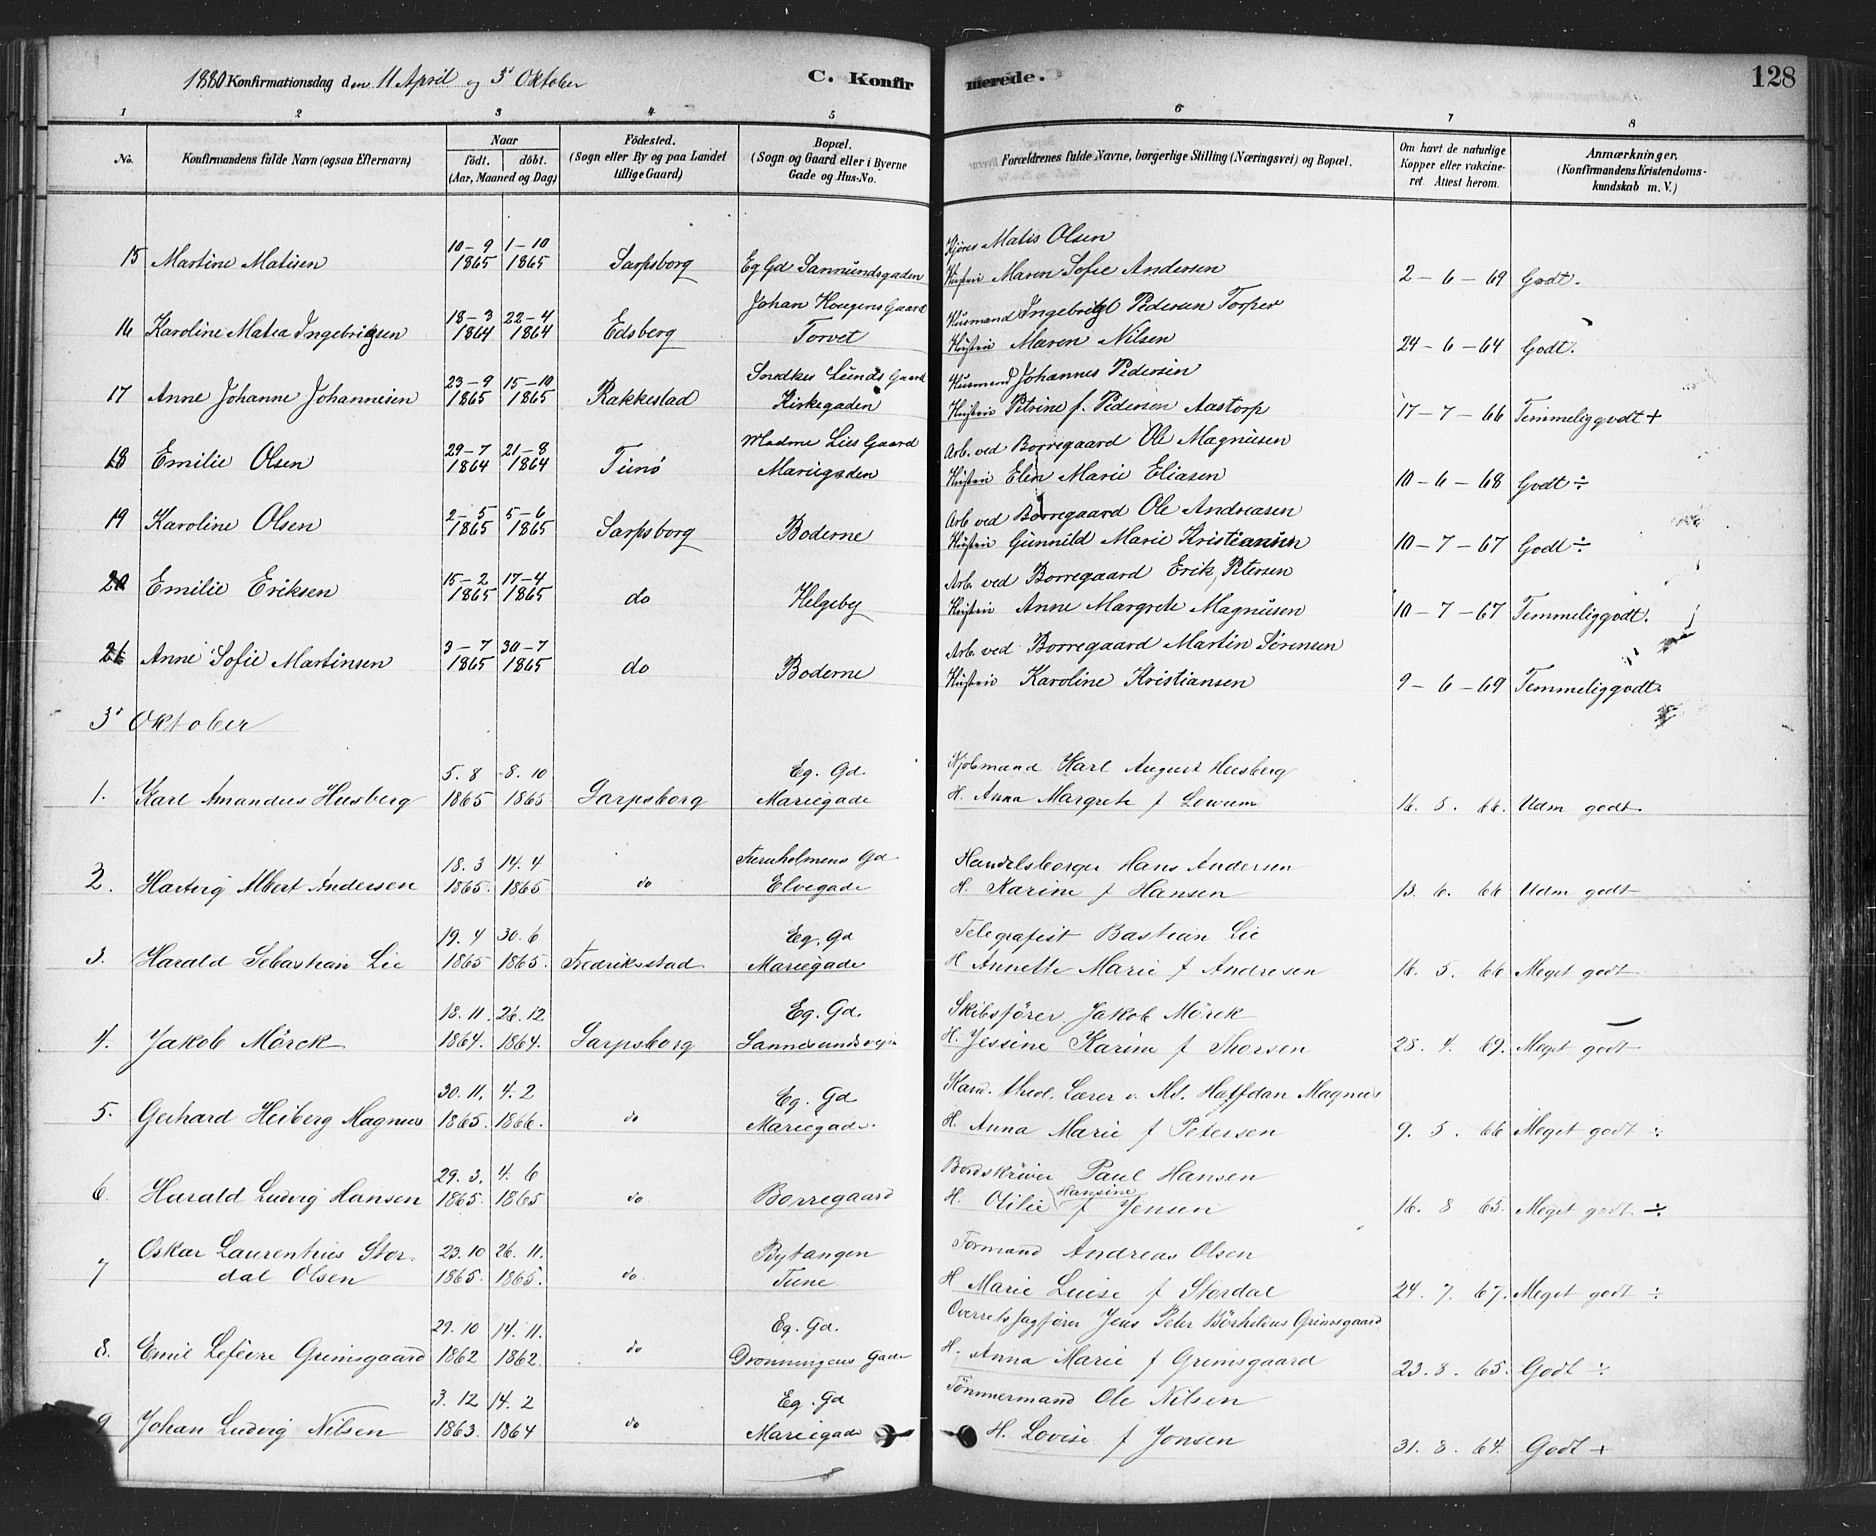 1880 Konfirmationsdag den 11 April og 3' Oktober
C. Konfirmerede.
128
1 2 3 4 5 6 7 8
No.
Konfirmandens fulde Navn (ogsaa Efternavn)
Naar
födt. | döbt.
(Aar, Maaned og Dag)
Födested.
(Sogn eller By og paa Landet
tillige Gaard)
Bopæl.
(Sogn og Gaard eller i Byerne
Gade og Hus-No.
Forældrenes fulde Navne, borgerlige Stilling (Næringsvei) og Bopæl.
Om havt de naturlige
Kopper eller vakcine-
ret. Attest herom.
Anmærkninger.
(Konfirmandens Kristendoms-
kundskab m. V.)
10-9 1-10 Kjøres Matis Olsen
15 Martine Matisen 1865 1865 Sarpsborg Eg Gd Sannundsgaden Hustru Maren Sofie Andersen 2-6-69 Godt.
18-3 22-4 Johan Hougens Gaard Husmand Ingebrigt Pedersen Torper
16 Karoline Matea Ingebrigsen 1864 1864 Edsberg Torvet Hustru Maren Nilsen 24-6-64 Godt.
23-9 15-10 Snedker Lunds Gaard Husmand Johannes Pedersen
17 Anne Johanne Johannesen 1865 1865 Rakkestad Kirkegaden Hustru Petrine f. Pedersen Aastorp 17-7-66 Temmeliggodt +
29-7 21-8 Madme Lies Gaard Arb. ved Borregaard Ole Magnusen
18 Emilie Olsen 1864 1864 Tunø Mariegaden Hustru Elen Marie Eliasen 10-6-68 Godt ÷
2-5 5-6 Arb ved Borregaard Ole Andreasen
19 Karoline Olsen 1865 1865 Sarpsborg Boderne Hustru Gunnild Marie Kristiansen 10-7-67 Godt ÷
15-2 17-4 Arb. ved Borregaard Erik Petersen
20 Emilie Eriksen 1865 1865 do Helgeby Hustru Anne Margrete Magnusen 10-7-67 Temmeliggodt.
3-7 30-7 Arb. ved Borregaard Martin Sørensen
21 Anne Sofie Martinsen 1865 1865 do Boderne Hustru Karoline Kristiansen 9-6-69 Temmeliggodt.
3' Oktober
5.8 8.10 Eg. Gd. Kjøbmand Karl August Husberg
1. Karl Amandus Husberg 1865 1865 Sarpsborg Mariegade H. Anna Margrete f Lowum 16. 5. 66. Udm godt
18.3 14.4 Gd Handelsborger Hans Andersen
2. Hartvig Albert Andersen 1865. 1865 do Elvegade H. Karine f Hansen 13. 6. 66 Udm godt
19.4 30.6 Eg. Gd Telegrafist Bastian Lie
3. Harald Sebastian Lie 1865 1865. Fredriksstad Mariegade H Annette Marie f Andresen 16. 5. 66 Meget godt
18.11. 26.12 Eg. Gd. Skibsfører Jakob Mörck
4. Jakob Mörck 1864. 1864. Sarpsborg Sannesundsvejn H. Jessine Karine f Thorsen 28. 4. 69. Meget godt
30.11. 4.2 Eg. Gd Kand. theol. Lærer v. Ms. Halfdan Magnus
5. Gerhard Heiberg Magnus 1865. 1866. do Mariegade. H. Anna Marie f Petersen 9. 5. 66 Meget godt ÷
29.3. 4.6 Bordskriver Paul Hansen
6. Harald Ludvig Hansen 1865. 1865 do Borregaard H. Otilie Hansine f Jensen 16. 8 65. Meget godt ÷
Oskar Laurentius Stor- 23.10 26.11. Bytangen Formand Andreas Olsen
7 dal Olsen 1865. 1865. do. Tune. H Marie Luise f Stordal 24. 7. 67. Meget godt ÷
29.10 14.11. Eg. Gd. Overretssagfører Jens Peter Grimsgaard
8. Emil Lefèvre Grimsgaard 1862 1862. do Dronningens Gade H. Anna Marie f Grimsgaard 23. 8. 65. Godt ÷
3.12 14.2 Eg. Gd Tömmermand Ole Nilsen
9 Johan Ludvig Nilsen 1863. 1864 do Mariegade H. Lovise f Jonsen 31. 8. 64. Godt +